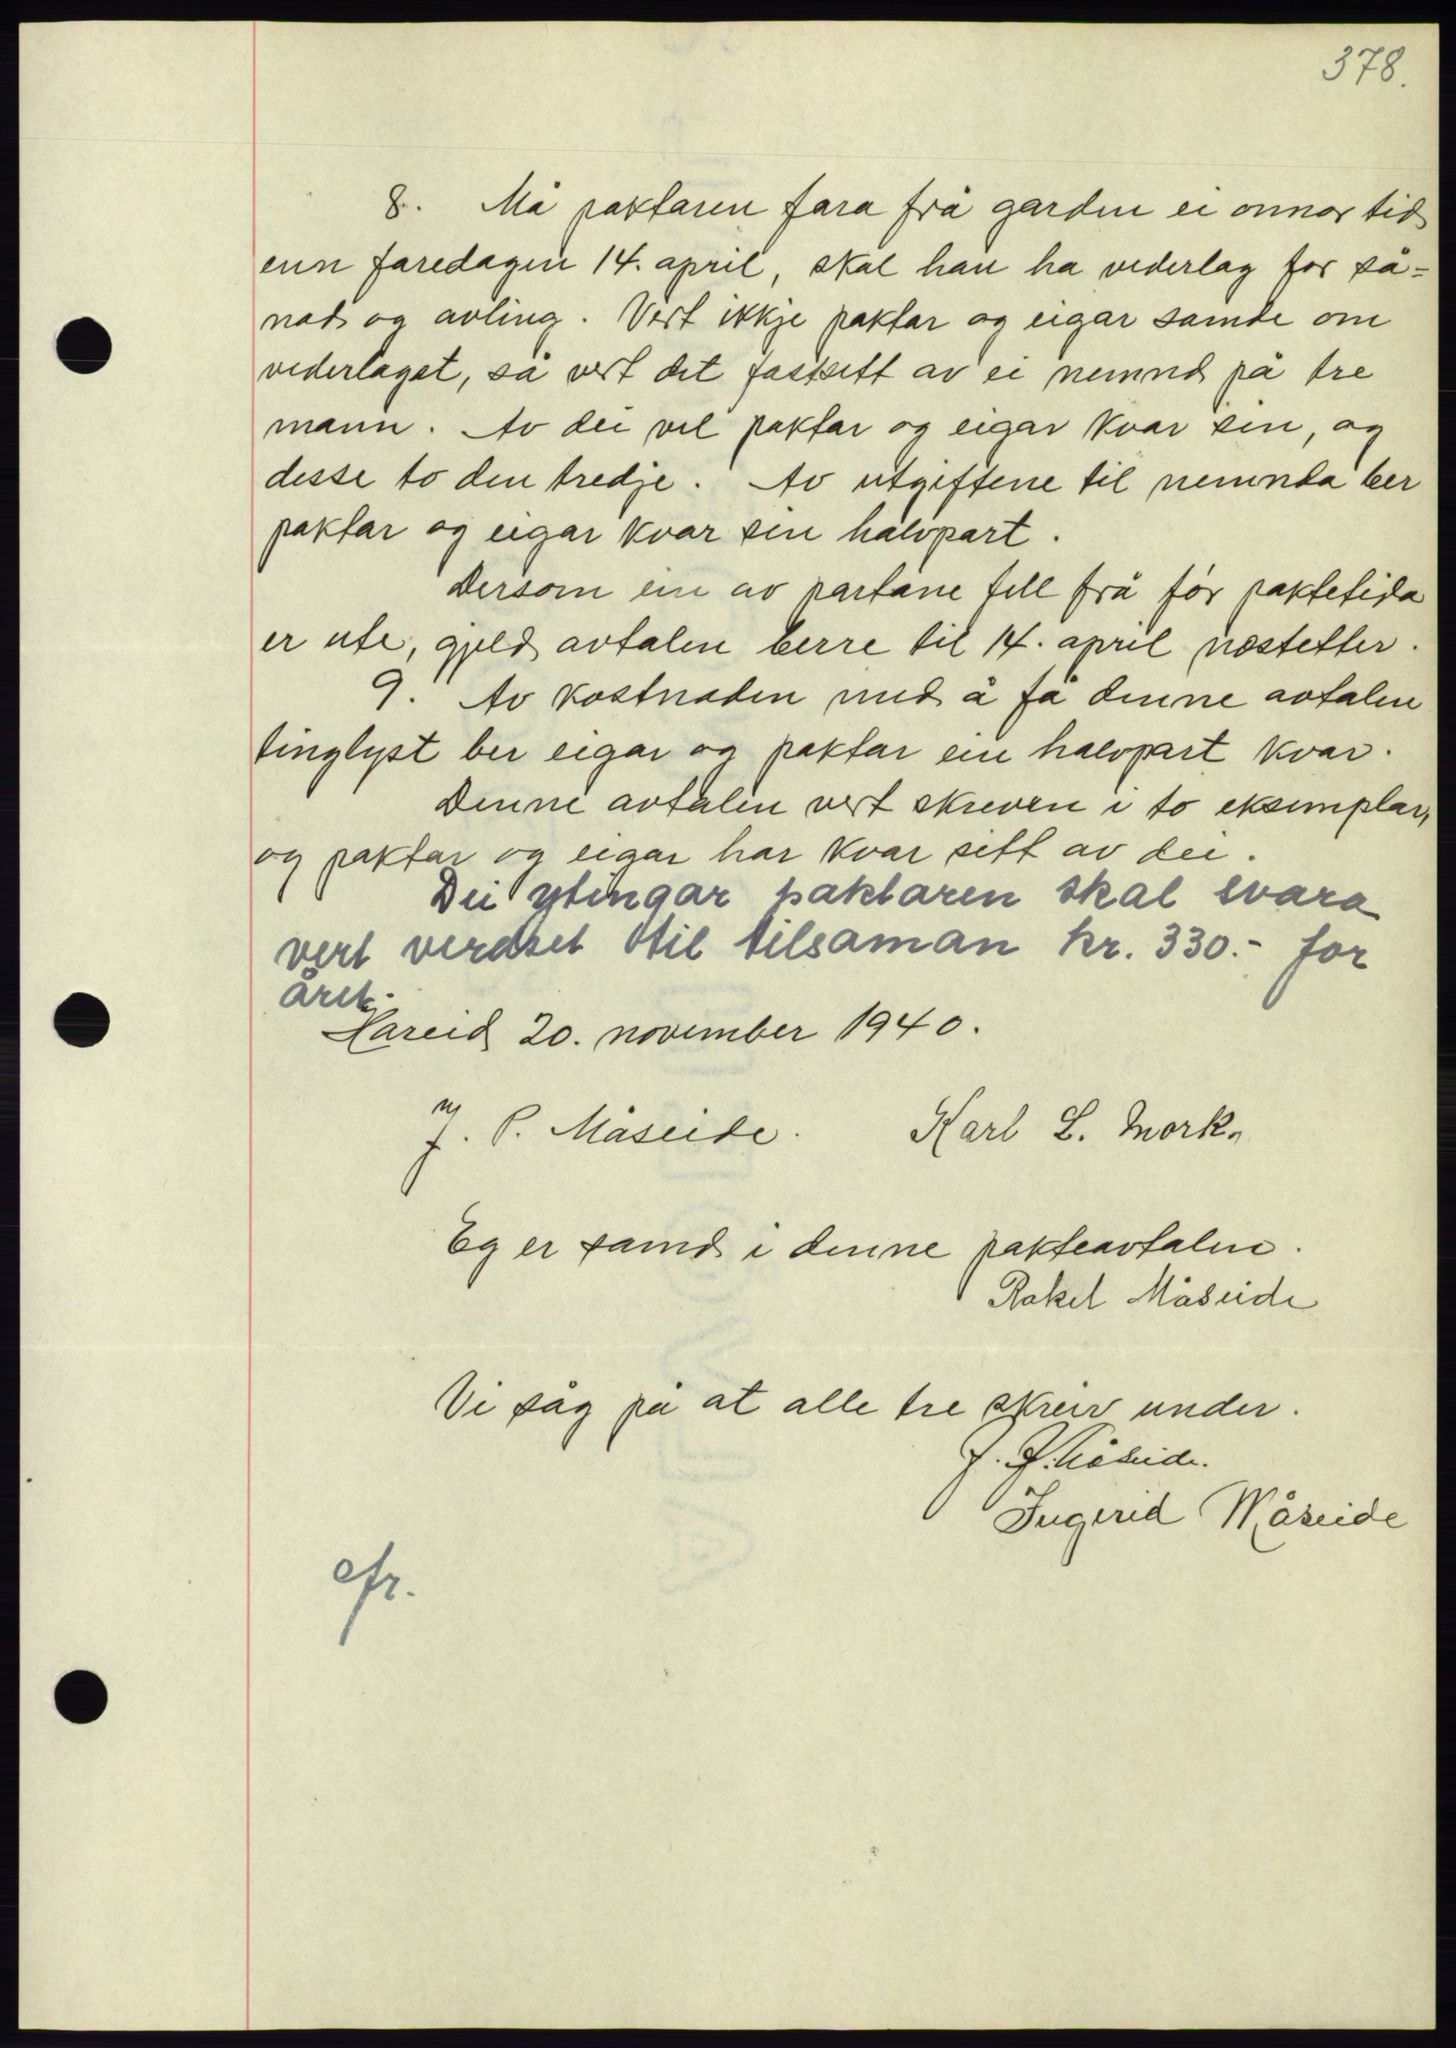 378.
8. Må paktaren fara frå garden ei onnor tid
enn faredagen 14. april, skal han ha vederlag for så-
nad og avling. Vert ikkje paktar og eigar samde om
vederlaget, så vert det fastsett av ei nemnd på tre
mann. Av dei vel paktar og eigar kvar sin, og
desse to den tredje. Av utgiftene til nemnda ber
paktar og eigar kvar sin halvpart.
Dersom ein av partane fell frå før paktetida
er ute, gjeld avtalen berre til 14. april næstetter.
9. Av kostnaden med å få denne avtalen
tinglyst ber eigar og paktar ein halvpart kvar.
Denne avtalen vert skreven i to eksemplar,
og paktar og eigar har kvar sitt av dei.
Dei ytingar paktaren skal svara
vert verdset til tilsaman kr. 330.- for
året.
Hareid 20. november 1940.
J. P. Måseide. Karl L. Mork.
Eg er samd i denne pakteavtalen.
Rakel Måseide
Vi såg på at alle tre skreiv under.
J. J. Måseide.
Ingerid Måseide
cfr.